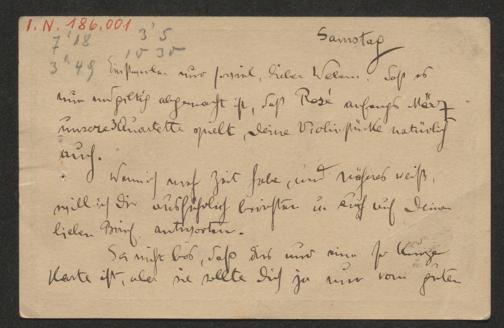 I. N. 186.001
7 18 3 5
10 30
3 49
Samstag
Einstweilen nur soviel, lieber Welemi, daß es
nun endgiltig abgemacht ist, daß Rosé anfangs März
unsere Quartette spielt, deine Violinstücke natürlich
auch.
Wenn ich mehr Zeit habe, und näheres weiß,
will ich dir ausführlich berichten u. auch auf deinen
lieben Brief antworten.
Sei nicht bös, daß dies nur eine so kurze
Karte ist, aber sie sollte dich ja nur vom guten